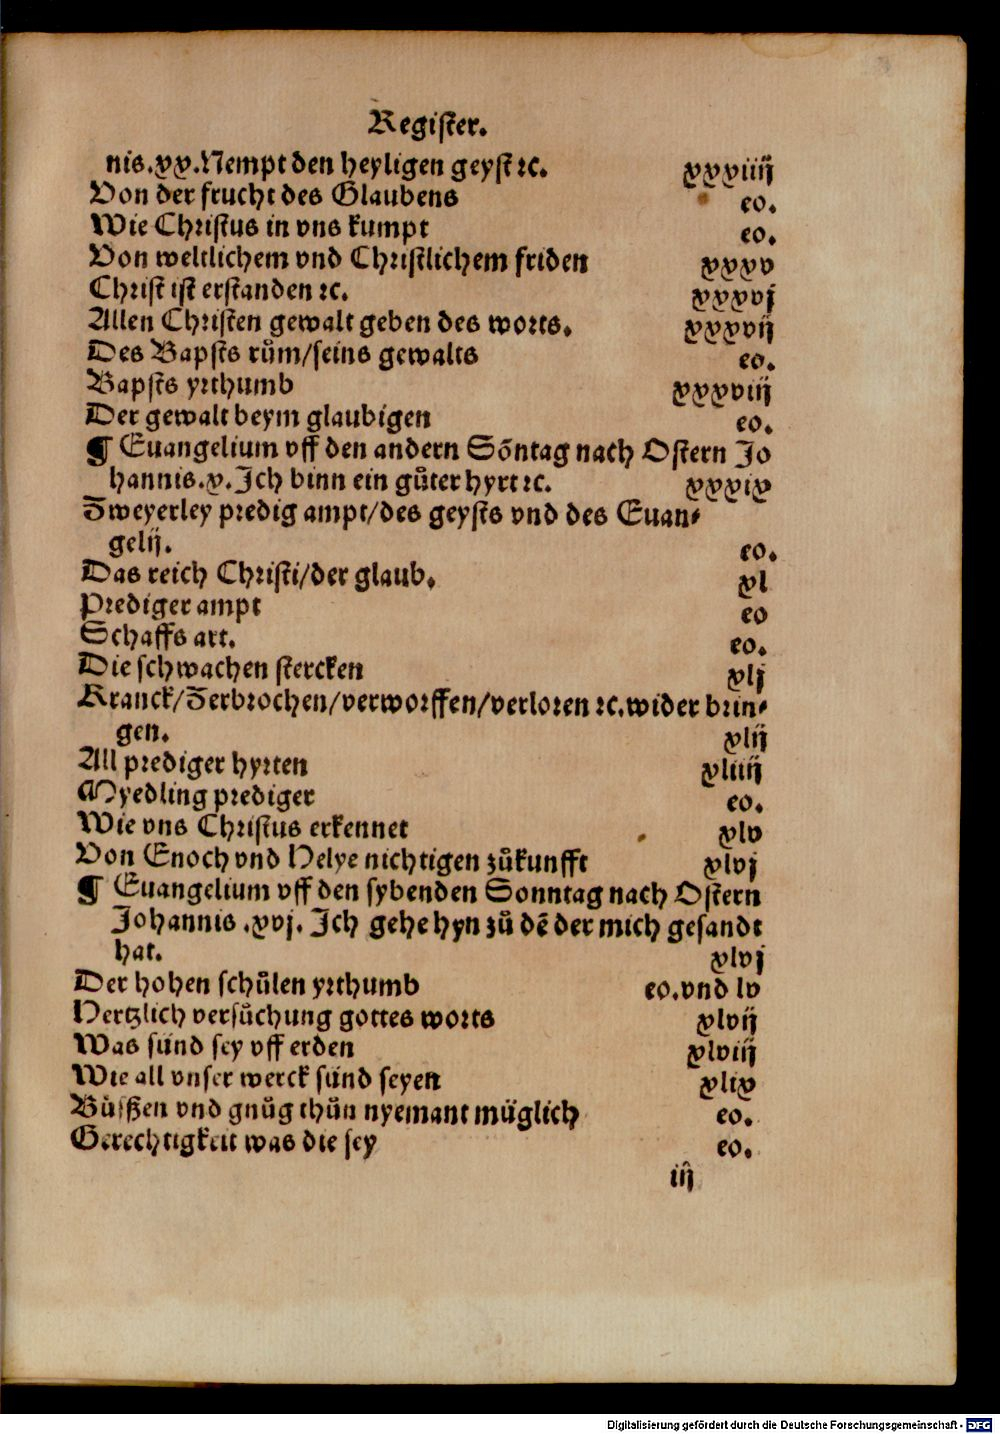 Register.
nis.xx. Nempt den heyligen geyst ꝛc. xxxiiij
Von der frucht des Glaubens eo.
Wie Christus in vns kumpt eo.
Von weltlichem vnd Christlichem friden xxxv
Christ ist erstanden ꝛc. xxxvj
Allen Christen gewalt geben des worts. xxxvij
Des Bapsts rům/seins gewalts eo.
Bapsts yrthumb xxxviij
Der gewalt beym glaubigen eo.
¶ Euangelium vff den andern Sōntag nach Ostern Jo
hannis.x. Ich binn ein gůter hyrt ꝛc. xxxix
Zweyerley predig ampt/des geysts vnd des Euan⸗
gelij. eo.
Das reich Christi/der glaub. xl
Prediger ampt eo
Schaffs art. eo.
Die schwachen stercken xlj
Kranck/Zerbrochen/verworffen/verloren ꝛc. wider brin⸗
gen. xlij
All prediger hyrten xliiij
Myedling prediger eo.
Wie vns Christus erkennet xlv
Von Enoch vnd Helye nichtigen zůkunfft xlvj
¶ Euangelium vff den sybenden Sonntag nach Ostern
Johannis .xvj. Ich gehe hyn zů dē der mich gesandt
hat. xlvj
Der hohen schůlen yrthumb eo.vnd lv
Hertzlich versůchung gottes worts xlvij
Was sünd sey vff erden xlviij
Wie all vnser werck sünd seyen xlix
Büssßen vnd gnůg thůn nyemant müglich eo.
Gerechtigkeit was die sey eo.
iij
Digitalisierung gefördert durch die Deutsche Forschungsgemeinschaft - DFG